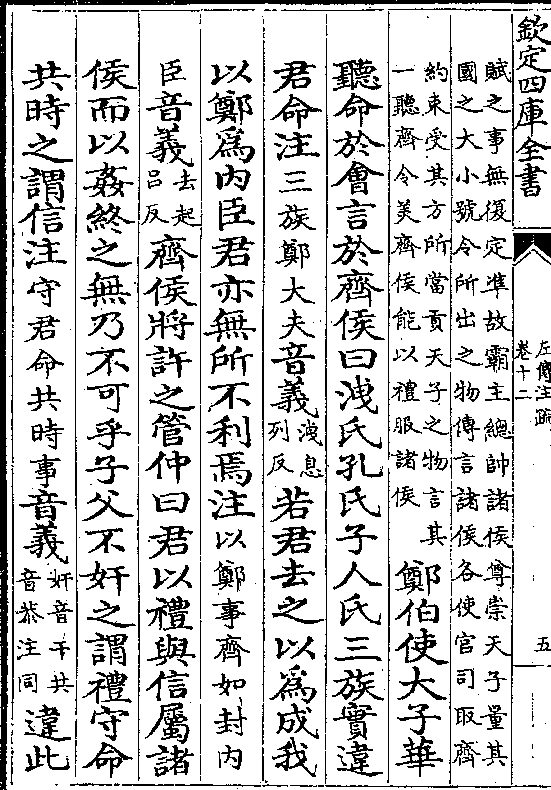 欽定四庫全書
左傳注疏
卷十二
五
賦之事無復定準故霸主總帥諸侯尊崇天子量其
國之大小號令所出之物傳言諸侯各使官司取齊
約束受其方所當貢天子之物言其
一聽齊令美齊侯能以禮服諸侯
鄭伯使大子華
聽命於會言於齊侯曰洩氏孔氏子人氏三族實違
君命注三族鄭大夫音義洩息
列反
若君去之以為成我
以鄭為内臣君亦無所不利焉注以鄭事齊如封内
臣音義去起
呂反
齊侯將許之管仲曰君以禮與信屬諸
侯而以姦終之無乃不可乎子父不奸之謂禮守命
共時之謂信注守君命共時事音義奸音干共
音恭注同
違此